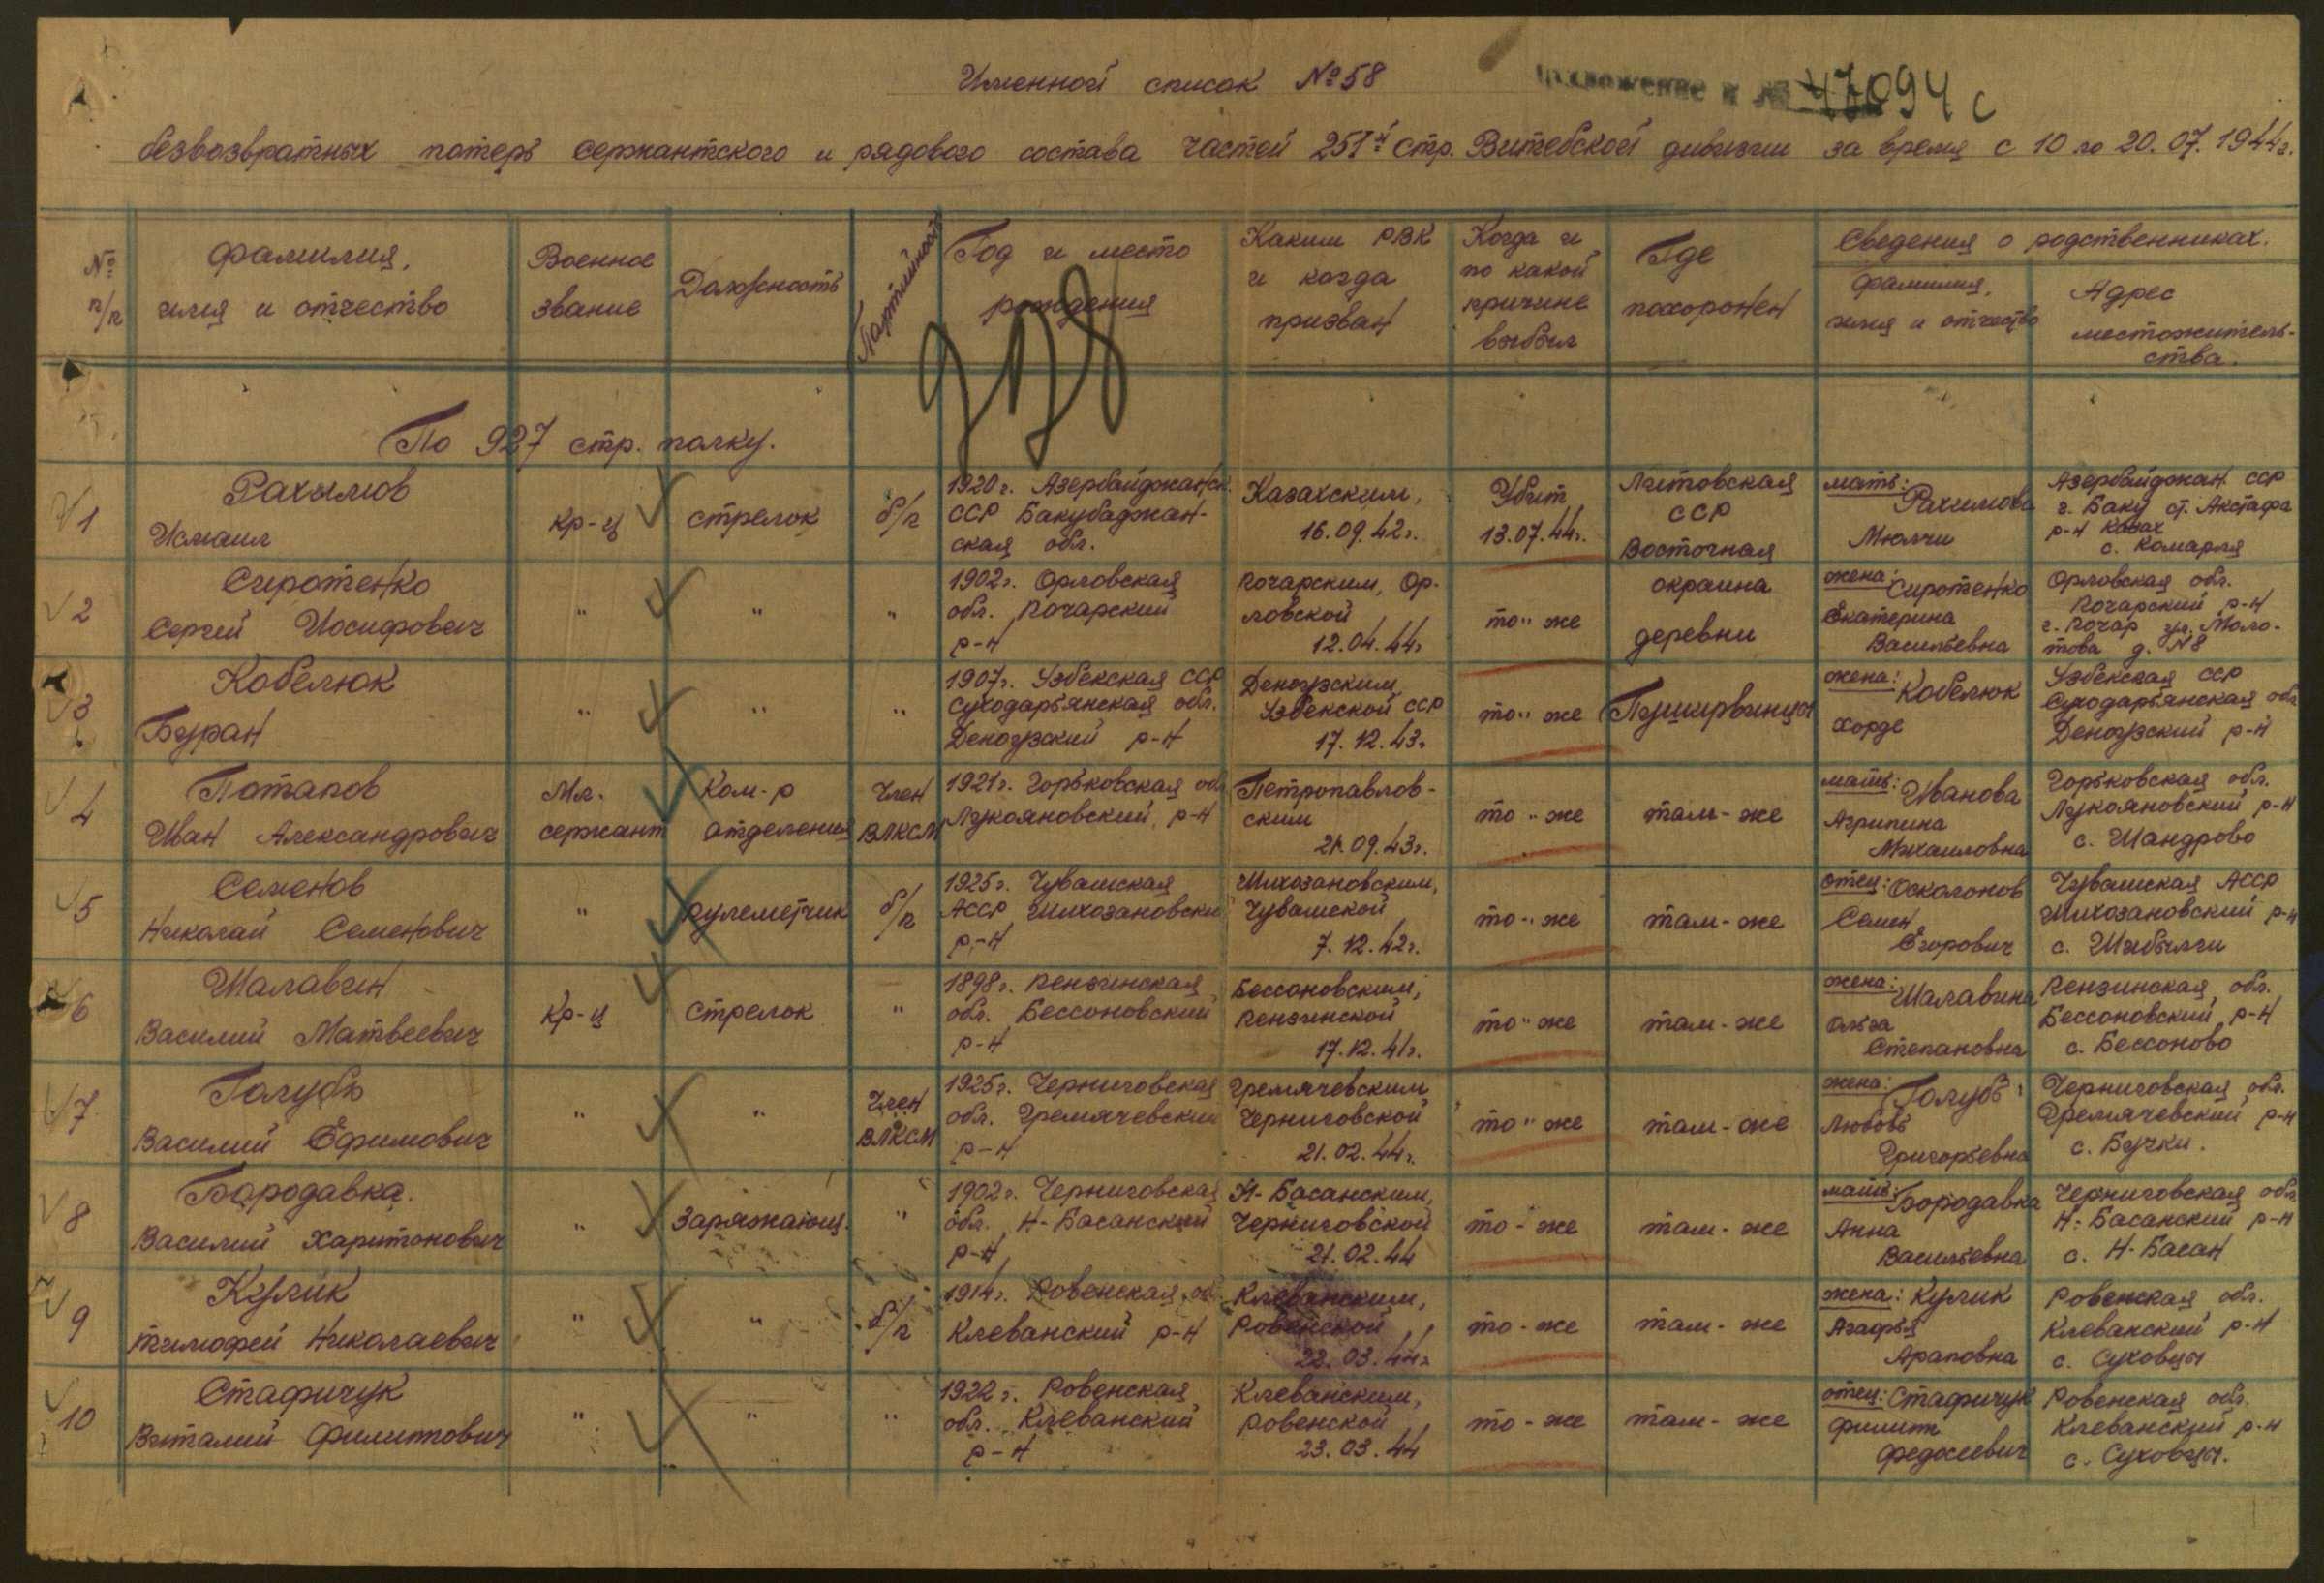 Именной список № 58
Приложение к № 47094 с
безвозвратных потерь сержантского и рядового состава частей 251й стр. Витебской дивизии за время с 10 по 20.07.1944г.
№ п/п
Фамилия, имя и отчество
Военное звание
Должность
Партийность
Год и место рождения
Каким РВК и когда призван
Когда и по какой причине выбыл
Где похоронен
Сведения о родственниках.
Фамилия, имя и отчество
Адрес местожитель-ства.
По 927 стр. полку.
1 Рахимов Исмаил кр-ц стрелок б/п 1920г. Азербайджанск. ССР Бакубаджан-ская обл. Казахским, 16.09.42г. Убит 13.07.44г. Литовская ССР Восточная мать: Рахимова Мюлчи Азербайджан ССР г. Баку ст. Акстафа р-н Казах с. Комарля
2 Сиротенко Сергей Иосифович " " " 1902г. Орловская обл. Почарский р-н Почарским, Ор-ловской 12.04.44г то " же окраина деревни жена: Сиротенко Екатерина Васильевна Орловская обл. Почарский р-н г. Почар ул. Моло-това д. №8
3 Кобелюк Буран " " " 1907г. Узбекская ССР Суходарьянская обл. Деноузский р-н Деноузским Узбекской ССР 17.12.43г то " же Пуширвинцы жена: Кобелюк Хорде Узбекская ССР Суходарьянская обл Деноузский р-н
4 Потапов Иван Александрович Мл. сержант Ком-р отделения Член ВЛКСМ 1921г. Горьковская обл Лукояновский р-н Петропавлов-ским 21.09.43г. то " же там-же мать: Иванова Агрипина Михаиловна Горьковская обл. Лукояновский р-н с. Шандрово
5 Семенов Николай Семенович " пулеметчик б/п 1925г. Чувашская АССР Шихозановски р-н Шихозановским, Чувашской 7.12.42г. то " же там-же отец: Осколонов Семен Егорович Чувашская АССР Шихозановский р-н с. Шибылги
6 Шалавин Василий Матвеевич Кр-ц стрелок " 1898г. Пензинская обл. Бессоновский р-н Бессоновским, Пензинской 17.12.41г. то " же там-же жена: Шалавина Ольга Степановна Пензинская обл. Бессоновский р-н с. Бессоново
7 Голубь Василий Ефимович " " Член ВЛКСМ 1925г. Черниговская обл. Гремячевский р-н Гремячевским Черниговской 21.02.44г. то " же там-же жена: Голубь Любовь Григорьевна Черниговская обл. Гремячевский р-н с. Бучки.
8 Бородавка. Василий Харитонович " Заряжающ. " 1902г. Черниговская обл. Н-Басанский р-н Н-Басанским, Черниговской 21.02.44 то-же там-же мать: Бородавка Анна Васильевна Черниговская обл Н-Басанский р-н с. Н-Басан
9 Кулик Тимофей Николаевич " " б/п 1914г. Ровенская об. Клеванский р-н Клеванским, Ровенской 22.03.44г то-же там-же жена: Кулик Агафья Араповна Ровенская обл. Клеванский р-н с. Суховцы
10 Стафичук Виталий Филиппович " " " 1922г. Ровенская обл. Клеванский р-н Клеванским, Ровенской 23.03.44 то-же там-же отец: Стафичук Филипп Федосеевич Ровенская обл. Клеванский р-н с. Суховцы.